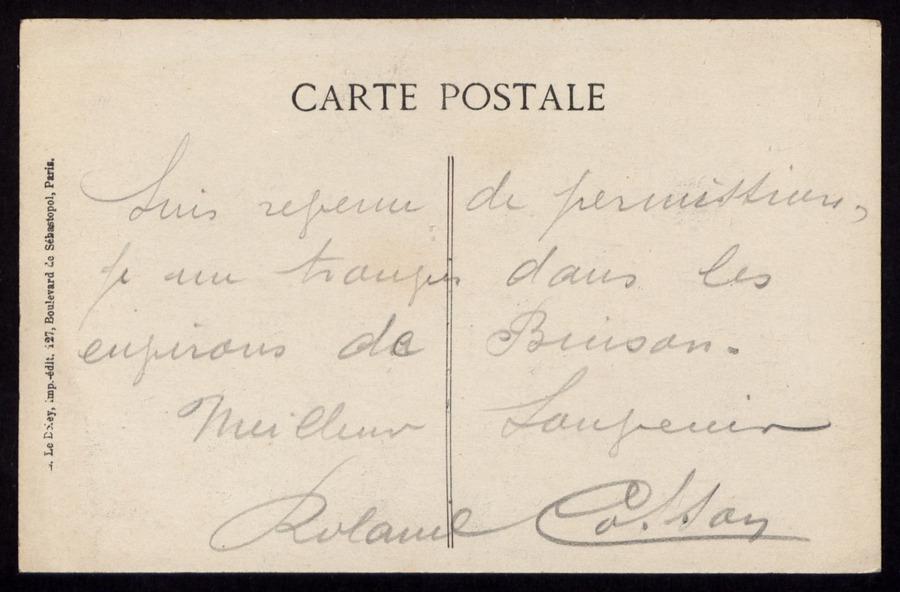 CARTE POSTALE
Suis revenu de permission,
je me trouve dans les
environs de Binson.
Meilleur Souvenir
Roland Cosson
Le Deley, imp.-édit. 127, Boulevard de Sébastopol, Paris.